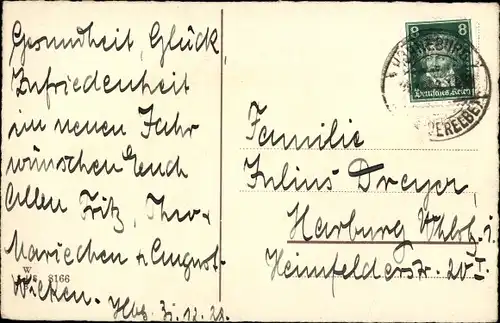 Gesundheit, Glück,
Zufriedenheit
im neuen Jahr
wünschen Euch
Allen Fritz, Theo-
Mariechen u. August-
Wieken.
Hbg. 31.12.28.
W
8166
8 8
Deutsches Reich
Familie
Julius Dreyer,
Harburg Whbg. i.
Heimfelderstr. 20 I.